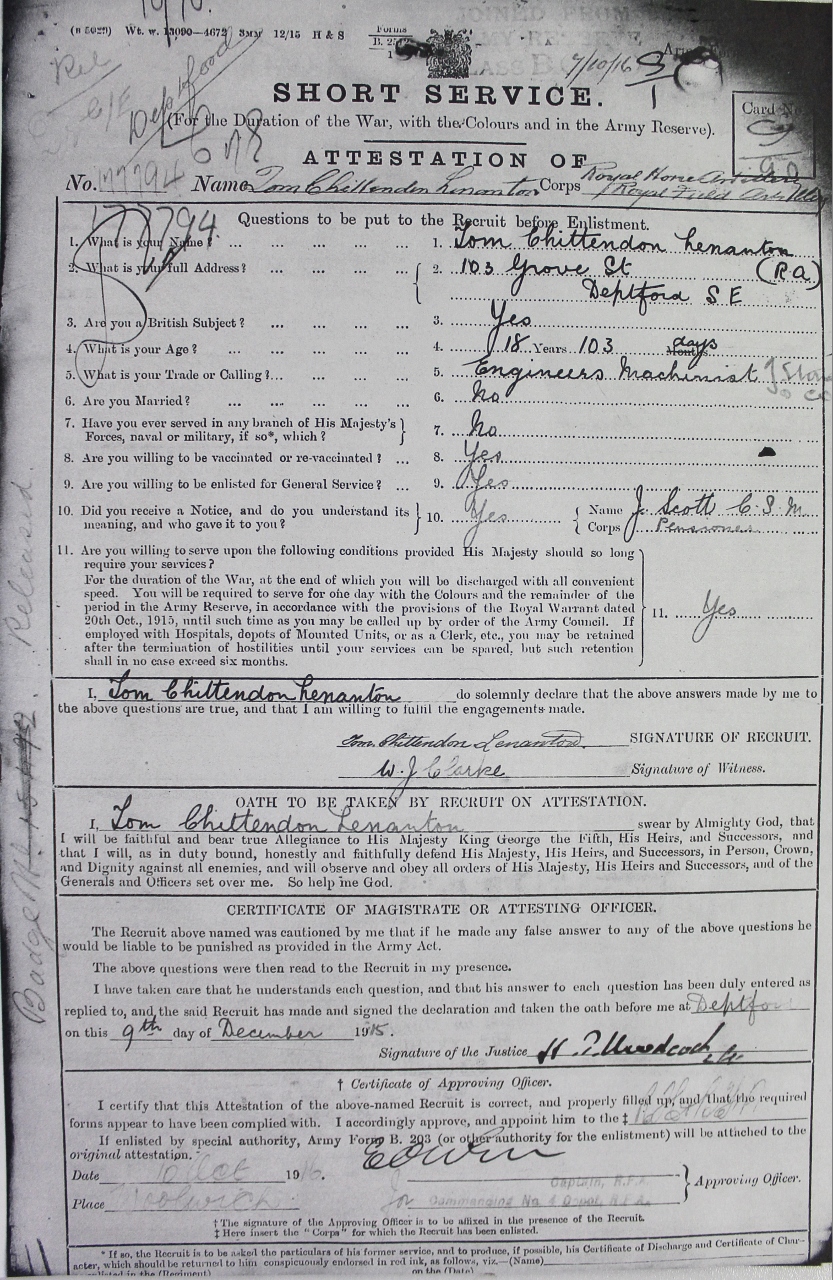 (R 5029) Wt. w. 13090—4672 3MM 12/15 H & S
Forms
B. 2512
1
7/10/16
Deptford
SHORT SERVICE.
(For the Duration of the War, with the Colours and in the Army Reserve).
Card No.
ATTESTATION OF
No. 177794 Name Tom Chittenden Lenanton Corps Royal Horse Artillery
Royal Field Artillery
177794
Questions to be put to the Recruit before Enlistment.
1. What is your Name? ... ... ... ... 1. Tom Chittendon Lenanton
2. What is your full Address? ... ... ... 2. 103 Grove St (R.A.)
Deptford S E
3. Are you a British Subject? ... ... ... 3. Yes
4. What is your Age? ... ... ... ... 4. 18 Years 103 Months days
5. What is your Trade or Calling?... ... ... 5. Engineers Machinist
6. Are you Married? ... ... ... ... 6. No
7. Have you ever served in any branch of His Majesty's
Forces, naval or military, if so*, which? 7. No
8. Are you willing to be vaccinated or re-vaccinated? ... 8. Yes
9. Are you willing to be enlisted for General Service? ... 9. Yes
10. Did you receive a Notice, and do you understand its
meaning, and who gave it to you? 10. Yes Name J. Scott C.S.M
Corps Pensioner
11. Are you willing to serve upon the following conditions provided His Majesty should so long
require your services?
For the duration of the War, at the end of which you will be discharged with all convenient
speed. You will be required to serve for one day with the Colours and the remainder of the
period in the Army Reserve, in accordance with the provisions of the Royal Warrant dated
20th Oct., 1915, until such time as you may be called up by order of the Army Council. If
employed with Hospitals, depots of Mounted Units, or as a Clerk, etc., you may be retained
after the termination of hostilities until your services can be spared, but such retention
shall in no case exceed six months.
11. Yes
I, Tom Chittendon Lenanton do solemnly declare that the above answers made by me to
the above questions are true, and that I am willing to fulfil the engagements made.
Tom Chittendon Lenanton SIGNATURE OF RECRUIT.
W. J Clarke Signature of Witness.
OATH TO BE TAKEN BY RECRUIT ON ATTESTATION.
I, Tom Chittendon Lenanton swear by Almighty God, that
I will be faithful and bear true Allegiance to His Majesty King George the Fifth, His Heirs, and Successors, and
that I will, as in duty bound, honestly and faithfully defend His Majesty, His Heirs, and Successors, in Person, Crown,
and Dignity against all enemies, and will observe and obey all orders of His Majesty, His Heirs and Successors, and of the
Generals and Officers set over me. So help me God.
CERTIFICATE OF MAGISTRATE OR ATTESTING OFFICER.
The Recruit above named was cautioned by me that if he made any false answer to any of the above questions he
would be liable to be punished as provided in the Army Act.
The above questions were then read to the Recruit in my presence.
I have taken care that he understands each question, and that his answer to each question has been duly entered as
replied to, and the said Recruit has made and signed the declaration and taken the oath before me at Deptford
on this 9th day of December 1915.
Signature of the Justice
† Certificate of Approving Officer.
I certify that this Attestation of the above-named Recruit is correct, and properly filled up, and that the required
forms appear to have been complied with. I accordingly approve, and appoint him to the ‡
If enlisted by special authority, Army Form B. 203 (or other authority for the enlistment) will be attached to the
original attestation.
Date Oct 1916.
Captain, R.F.A.
Approving Officer.
Place Woolwich
for Commanding No. 4 Depot, R.F.A.
† The signature of the Approving Officer is to be affixed in the presence of the Recruit.
‡ Here insert the "Corps" for which the Recruit has been enlisted.
* If so, the Recruit is to be asked the particulars of his former service, and to produce, if possible, his Certificate of Discharge and Certificate of Char-
acter, which should be returned to him conspicuously endorsed in red ink, as follows, viz.—(Name)
enlisted in the (Regiment) on the (Date)
Released